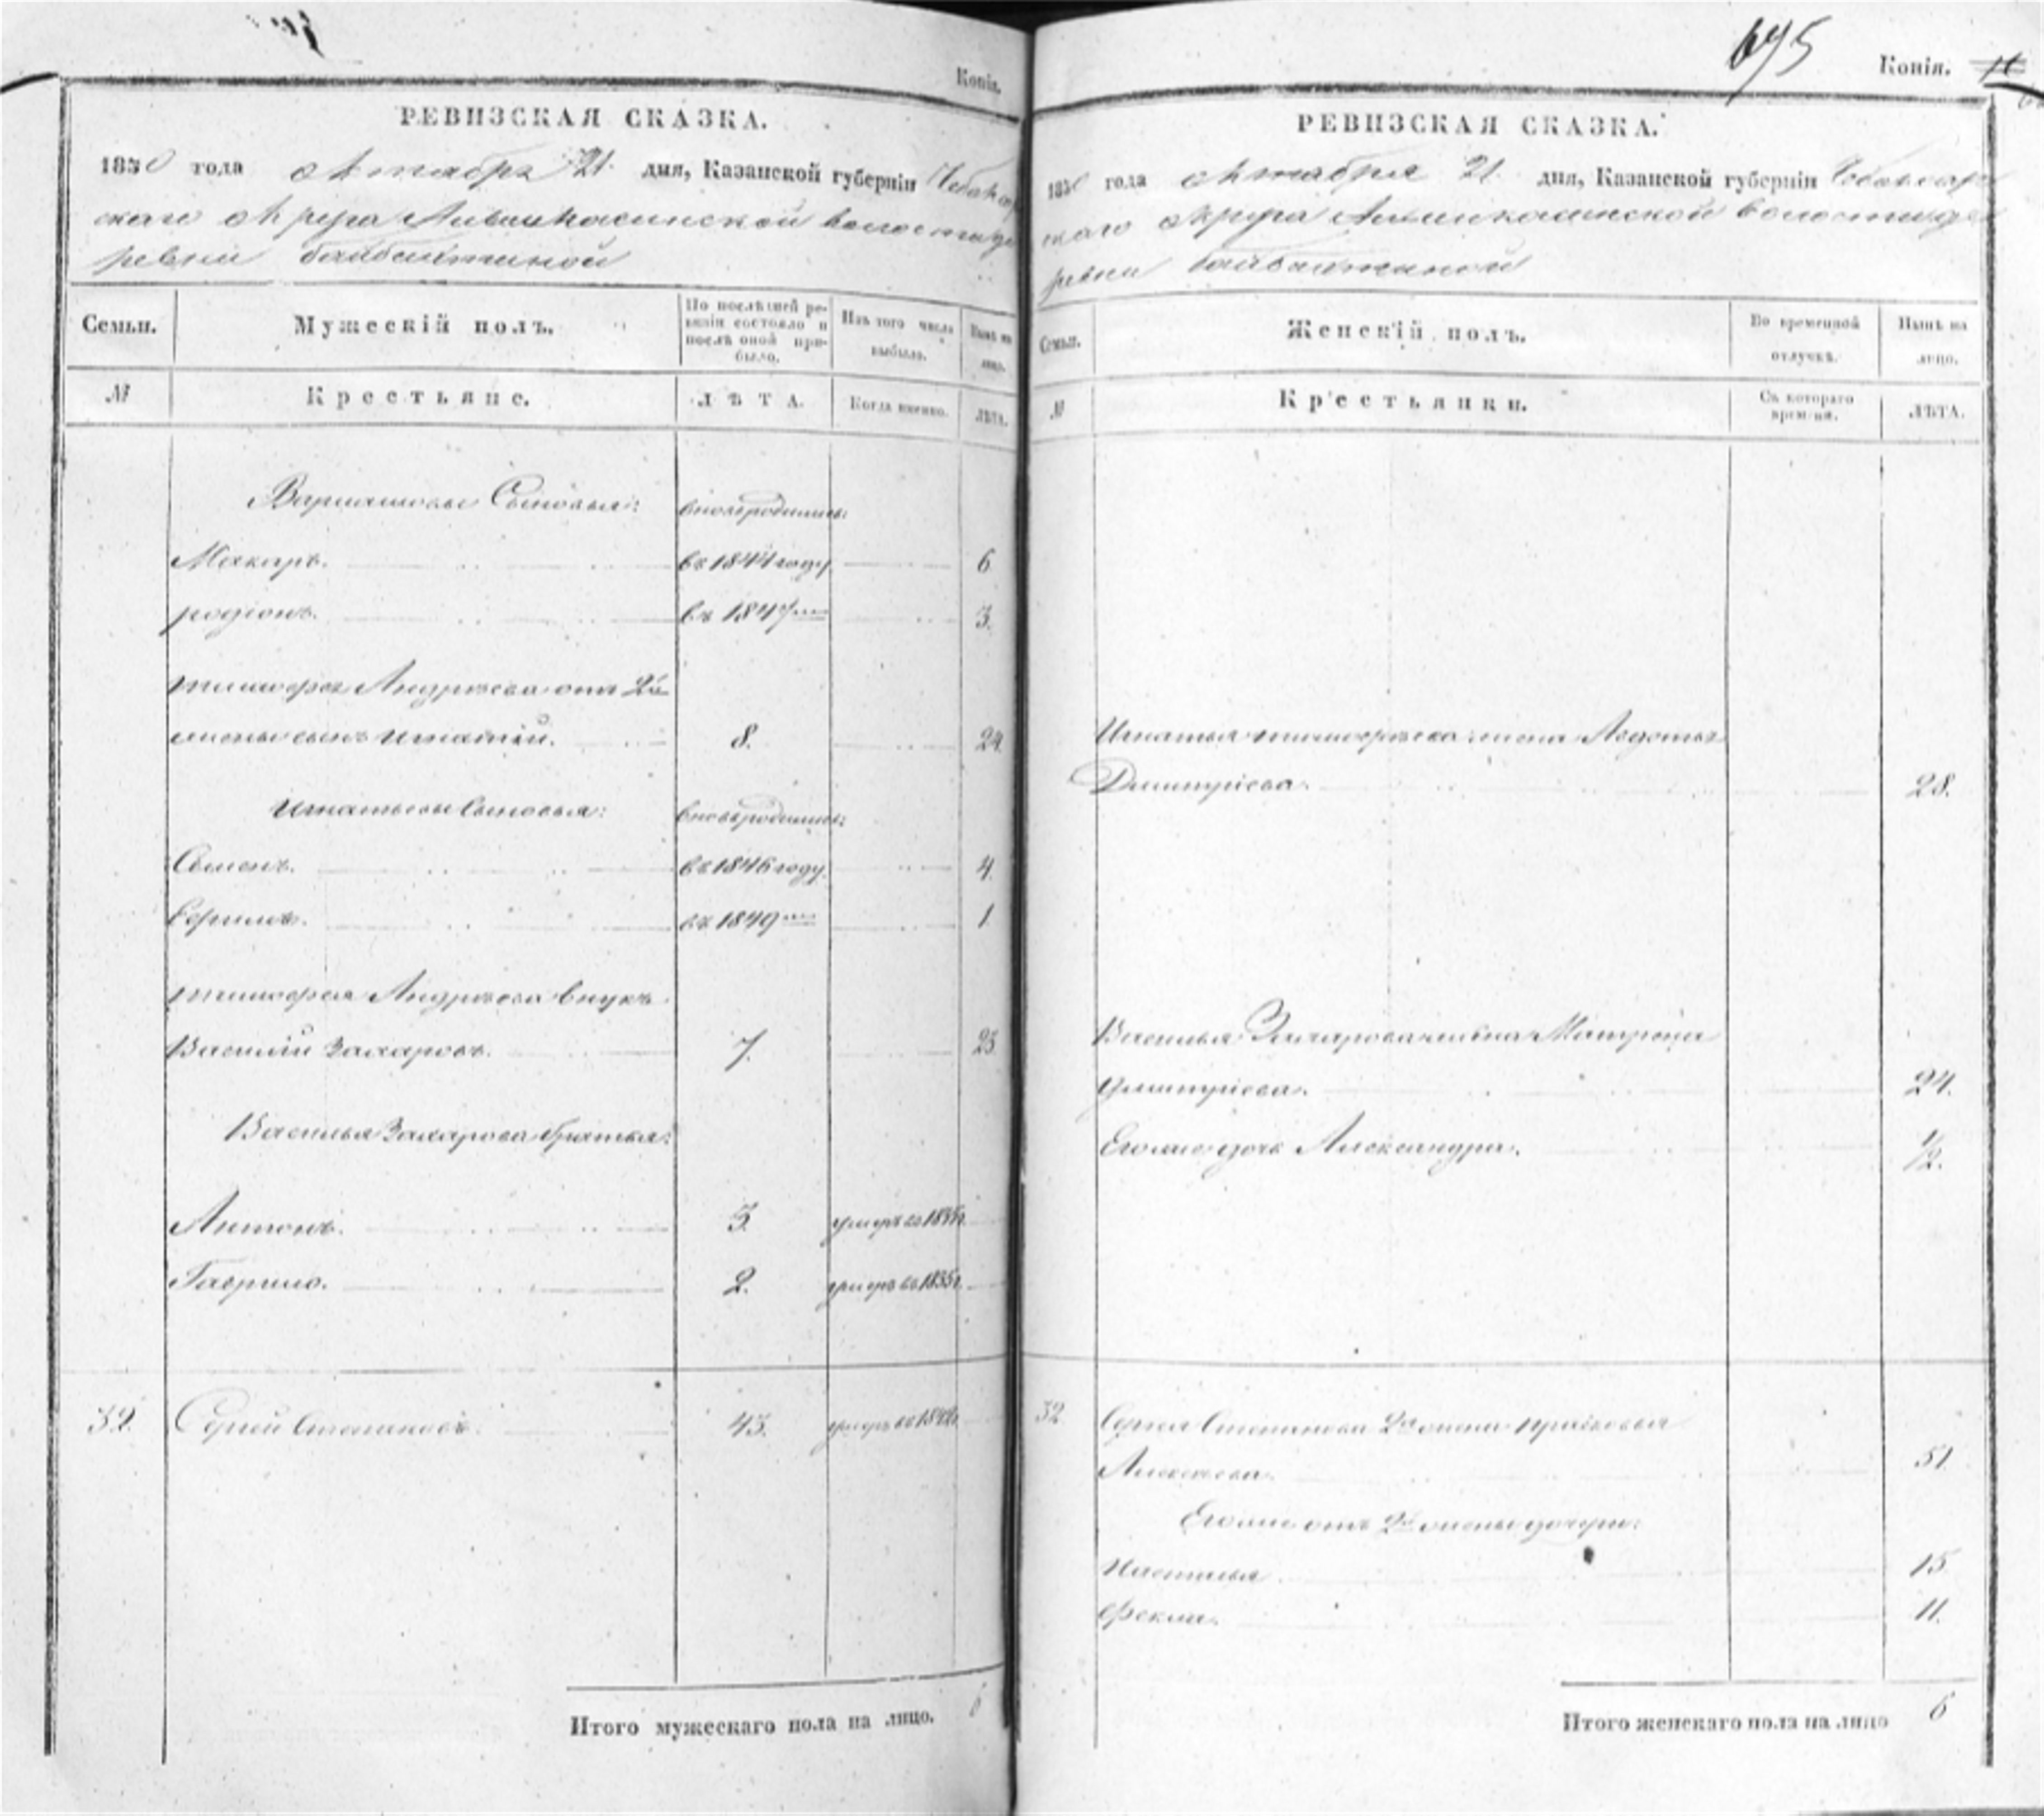 Копія.
РЕВИЗСКАЯ СКАЗКА.
1850 года октября 21 дня, Казанской губерніи Чебоксар
скаго округа волости де
ревни Байбахтиной
Семьи.
Мужескій полъ.
По послѣдней ре-
визіи состояло и
послѣ оной при-
было.
Изъ того числа
выбыло.
Нынѣ на
лицо.
№
Крестьяне.
ЛѢТА.
Когда именно.
ЛѢТА.
сыновья: вновьродились:
Макаръ. въ 1844 году 6.
родіонъ. въ 1847 3.
тимофея Андрѣева отъ 2й
жены сынъ игнатій. 8. 24.
игнатьевы сыновья: вновьродились:
Семенъ. въ 1846 году. 4.
въ 1849 1.
тимофея Андрѣева внукъ
Василій Захаровъ. 7. 23.
Василья Захарова братья:
Антонъ. 3. умеръ въ
Гаврило. 2. умеръ въ 1835г.
32. Сергей Степановъ. 43. умеръ въ
Итого мужескаго пола на лицо. 6
695
Копія.
РЕВИЗСКАЯ СКАЗКА.
1850 года октября 21 дня, Казанской губерніи Чебоксар
скаго округа волости де
ревни Байбахтиной
Семьи.
Женскій полъ.
Во временной
отлучкѣ.
Нынѣ на
лицо.
№
Крестьянки.
Съ котораго
времени.
ЛѢТА.
Игнатья тимофѣева жена Авдотья
Дмитріева. 28.
Василья Захарова жена Матрена
дмитріева. 24.
Егоже дочь Александра. 1/2.
32. Сергея Степанова 2я жена прасковья
Алексѣева. 51.
Егоже отъ 2й жены дочери:
Настасья. 15.
Фекла. 11.
Итого женскаго пола на лицо 6